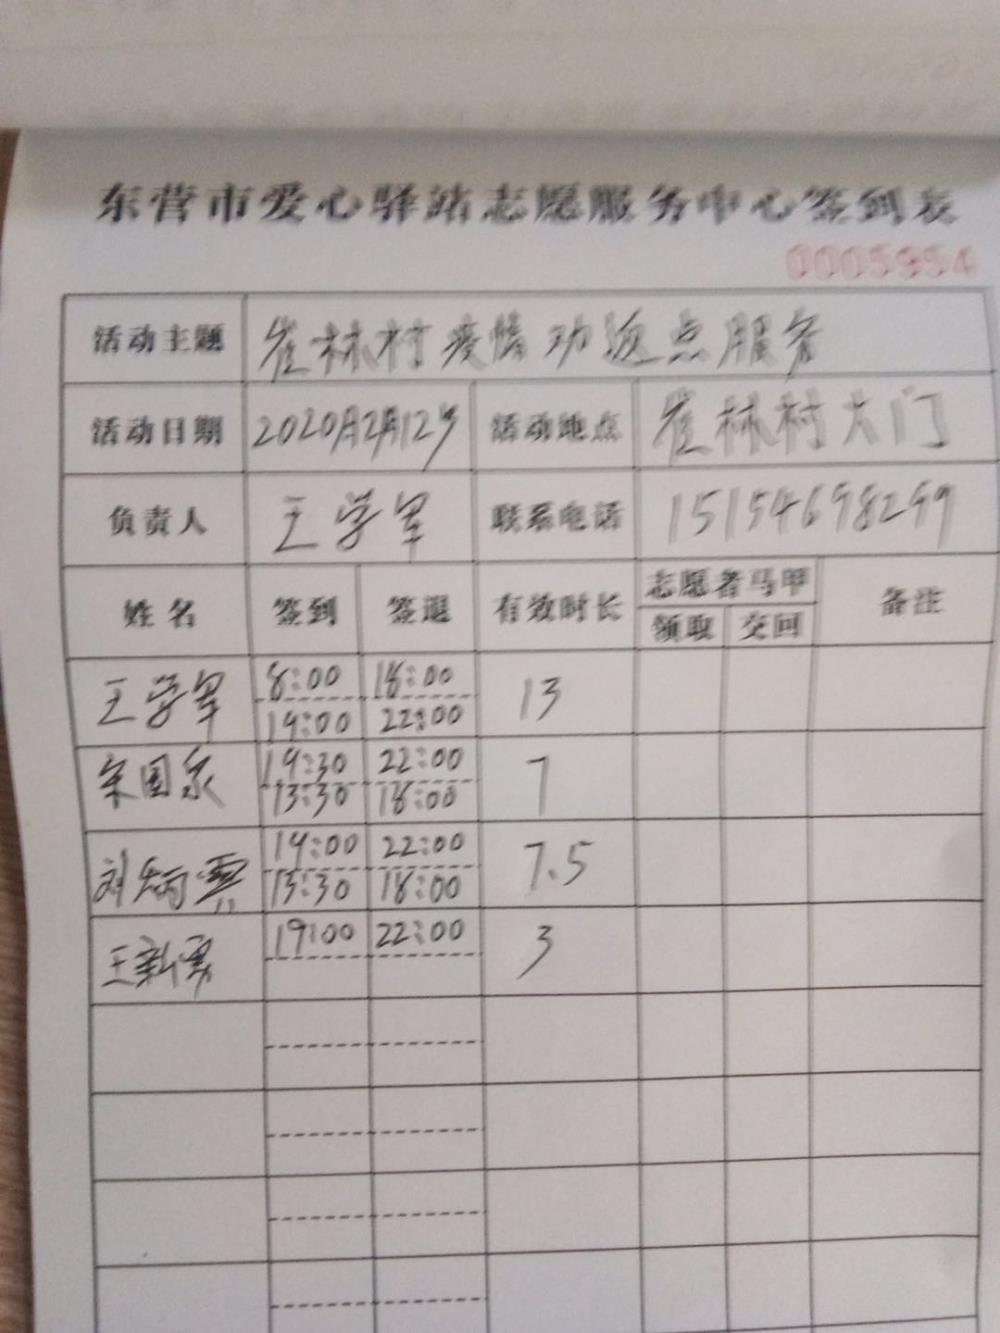 东营市爱心驿站志愿服务中心签到表
0005954
活动主题 崔林村疫情劝返点服务
活动日期 2020年2月12日 活动地点 崔林村大门
负责人 王学军 联系电话 15154698299
姓名 签到 签退 有效时长 志愿者马甲 备注
领取 交回
王学军 8:00 18:00 13
19:00 22:00
宋国泉 19:30 22:00 7
13:30 18:00
刘炳 19:00 22:00 7.5
13:30 18:00
王新勇 19:00 22:00 3